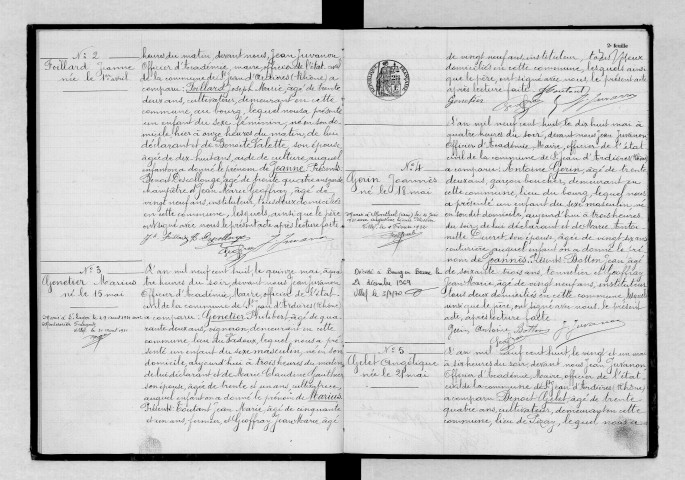 N° 2
Foillard Jeanne
née le 1er avril
heures du matin, devant nous, Jean Juvanon
Officier d'Académie, maire, officier de l'état civil
de la commune de St Jean d'Ardières (Rhône), a
comparu : Foillard Joseph Marie, âgé de trente
deux ans, cultivateur, demeurant en cette
commune, au bourg, lequel nous a présenté
un enfant du sexe féminin, né en son do-
micile hier à onze heures du matin, de lui
déclarant et de Benoite Valette, son épouse,
âgée de dix huit ans, aide de culture, auquel
enfant on a donné le prénom de Jeanne. Présents
Benoit âgé de trente quatre ans, garde
champêtre et Jean Marie Geoffray, âgé de
vingt neuf ans, instituteur, tous deux domiciliés
en cette commune, lesquels, ainsi que le père
ont signé avec nous le présent acte après lecture faite
J. Juvanon
N° 3
Gonetier Marius
né le 15 mai
L'an mil neuf cent huit, le quinze mai, à qua-
tre heures du soir, devant nous Jean Juvanon
Officier d'Académie, Maire, officier de l'état
civil de la commune de St Jean d'Ardières (Rhône)
a comparu : Gonetier Philibert, âgé de qua-
rante deux ans, vigneron, demeurant en cette
commune, lieu du lequel, nous a pré-
senté un enfant du sexe masculin, né en son
domicile, aujourd'hui à trois heures du matin,
de lui déclarant et de Marie Claudine Gauthier
son épouse, âgée de trente et un ans, cultivatrice,
auquel enfant on a donné le prénom de Marius.
Présents : Coutant Jean Marie, âgé de cinquante
et un ans, fermier, et Geoffray Jean Marie, âgé
2e feuille
de vingt neuf ans, instituteur, tous deux
domiciliés en cette commune, lesquels ainsi
que le père, ont signé avec nous le présent acte
après lecture faite. Coutant
Gonetier
J. Juvanon
N° 4
Gorin Joannès
né le 18 mai
Divorcé à Bourg en Bresse le
L'an mil neuf cent huit le dix huit mai à
quatre heures du soir, devant nous Jean Juvanon
Officier d'Académie, Maire, officier de l'état
civil de la commune de St Jean d'Ardières (Rhône)
a comparu : Antoine Gorin, âgé de trente
deux ans, garçon boucher, demeurant en
cette commune, lieu du bourg, lequel nous
a présenté un enfant du sexe masculin, né
en son dit domicile, aujourd'hui à trois heures
du soir, de lui déclarant et de Marie
son épouse, âgée de vingt six ans
couturière, auquel enfant on a donné le pré-
nom de Joannès. Présents Jean âgé
de soixante trois ans, tonnelier et Geoffray
Jean Marie, âgé de vingt neuf ans, instituteur
tous deux domiciliés en cette commune, lesquels
ainsi que le père, ont signé avec nous le présent
acte, après lecture faite
Gorin Antoine
J. Juvanon
N° 5
Gelet Angélique
née le 21 mai
L'an mil neuf cent huit, le vingt et un mai
à dix heures du soir, devant nous Jean Juvanon
Officier d'Académie, Maire, officier de l'état
civil de la commune de St Jean d'Ardières (Rhône)
a comparu Benoit Gelet, âgé de trente
quatre ans, cultivateur, demeurant en cette
commune, lieu de lequel nous a